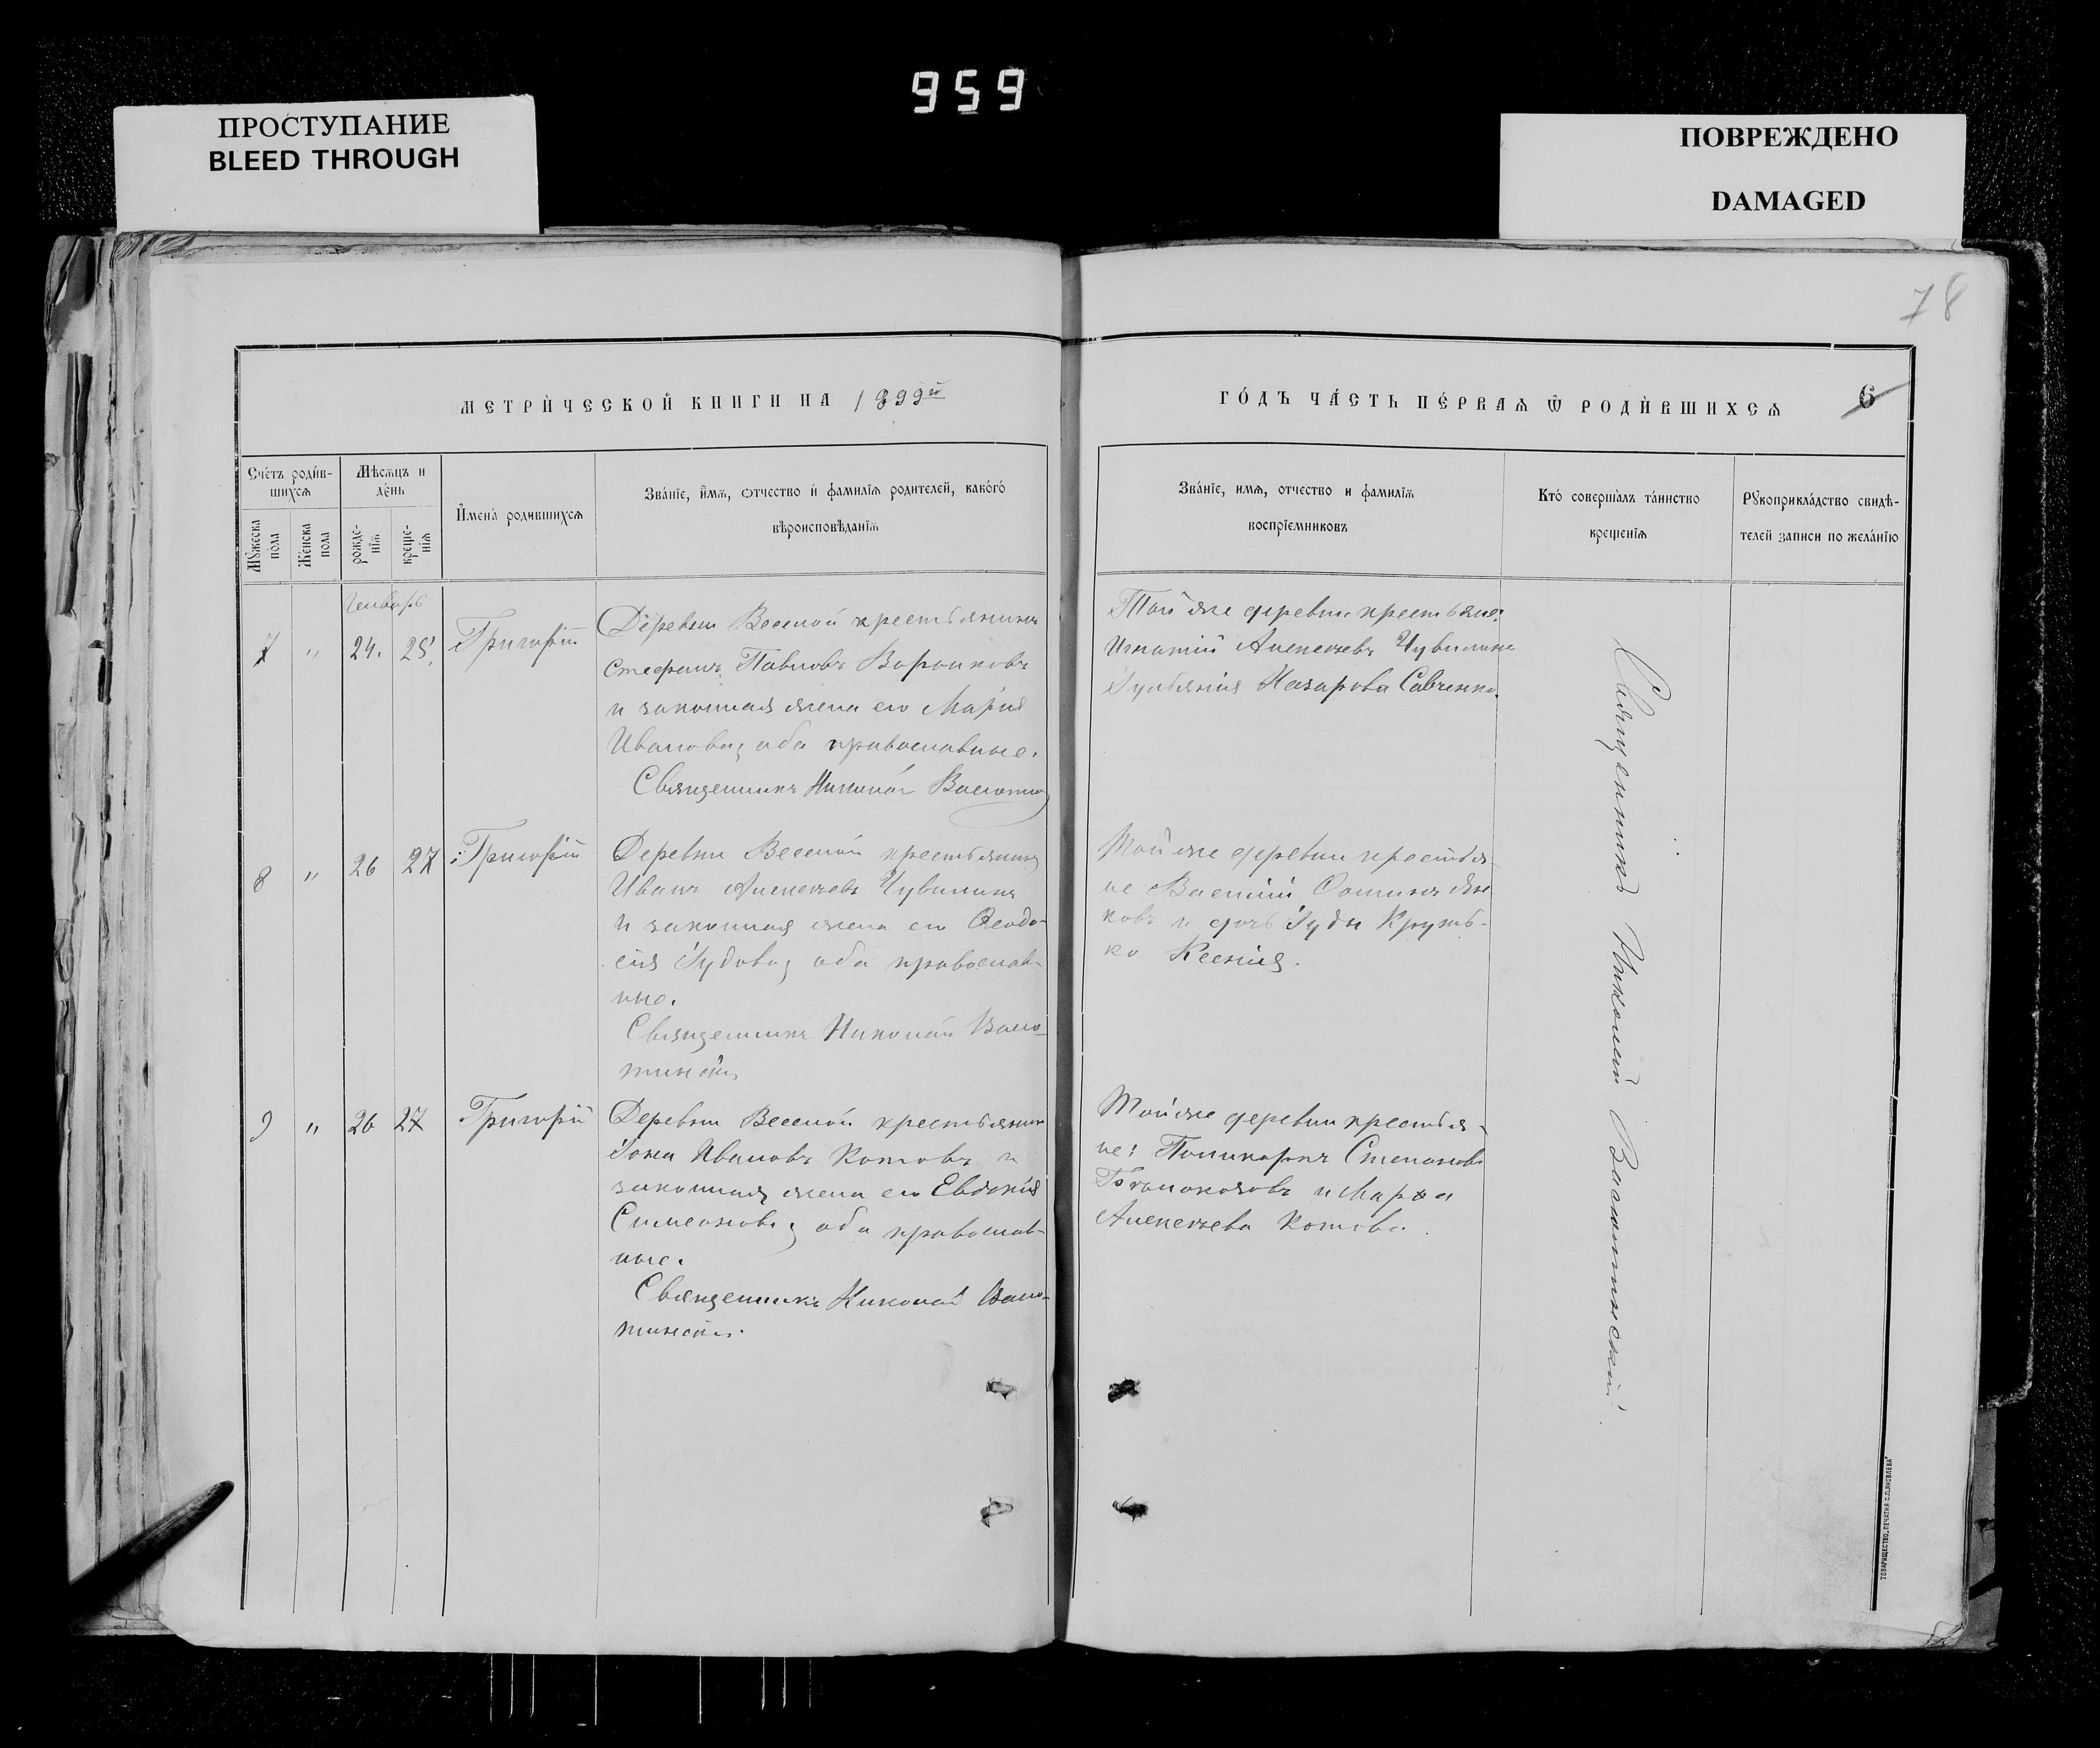 959
ПРОСТУПАНИЕ
BLEED THROUGH
ПОВРЕЖДЕНО
DAMAGED
78
МЕТРИ́ЧЕСКОЙ КНИГИ НА 1899й
ГО́ДЪ ЧА́СТЬ ПЕ́РВАѦ Ѿ РОДИ́ВШИХСѦ
6
Сче́тъ роди́в-
шихсѧ
Мѣсѧцъ и
де́нь
Мꙋ́жеска
по́ла
Же́нска
пола
рожде-
нїѧ
креще-
нїѧ
И҆мена̀ родившихсѧ
Зва́нїе, и҆́мѧ, ѻтчество и҆ фамилїѧ родителей, како́гѡ
вѣроисповѣданїѧ
Зва́нїе, имѧ, отчество и фамилїѧ
воспрїемниковъ
Кто̀ соверша̀лъ та́инство
крещенїѧ
Рꙋкоприкла́дство свидѣ-
телей записи по жела́нїю
Генварь
7 " 24. 25. Григорій
Деревни Веселой крестьянинъ
Стефанъ Павловъ
и законная жена его Марія
Иванова, оба православные.
Священникъ Николай
Той же деревни крестьяне:
Игнатій Алексѣевъ Чувилинъ
Іуліянія Назарова Савченко.
8 " 26 27 Григорій
Деревни Веселой крестьянинъ
Иванъ Алексѣевъ Чувилинъ
и законная жена его Ѳеодо-
сія Іудова, оба православ-
ные.
Священникъ Николай
Той же деревни крестья-
не Василій
и дочь Іуды Круть-
ко Ксенія.
9 " 26 27 Григорій
Деревни Веселой крестьянинъ
Іона Ивановъ Котовъ и
законная жена его Евдокія
Симеонова, оба православ-
ные.
Священникъ Николай
Той же деревни крестья-
не: Поликарпъ Степановъ
и Марѳа
Алексѣева Котова.
Священникъ Николай
ТОВАРИЩЕСТВО „ПЕЧАТНЯ С.П.ЯКОВЛЕВА"